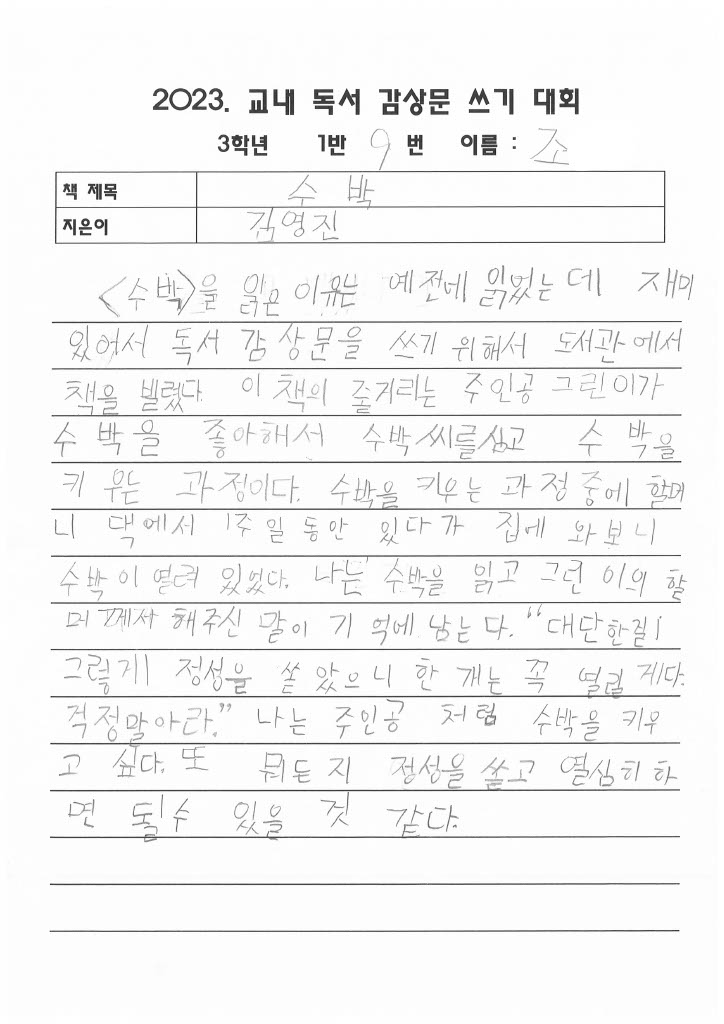 2023. 교내 독서 감상문 쓰기 대회
3학년 1반 9 번 이름 : 조
책 제목 수 박
지은이 김영진
<수박>을 읽은 이유는 예전에 읽었는 데 재미
있어서 독서 감상문을 쓰기 위해서 도서관에서
책을 빌렸다. 이 책의 줄거리는 주인공 그린이가
수 박을 좋아해서 수박씨를심고 수 박을
키 우는 과정이다. 수박을 키우는 과정 중에 할머
니 댁에서 1주일 동안 있다가 집에 와보니
수박이 열려 있었다. 나는 수박을 읽고 그린 이의 할
머 께서 해주신 말이 기 억에 남는다. "대단한걸!
그렇게 정성을 쏟 았으니 한 개는 꼭 열릴 게다.
걱정말아라." 나는 주인공 처럼 수박을 키우
고 싶다. 또 뭐든지 정성을 쏟고 열심히 하
면 될수 있을 것 같다.